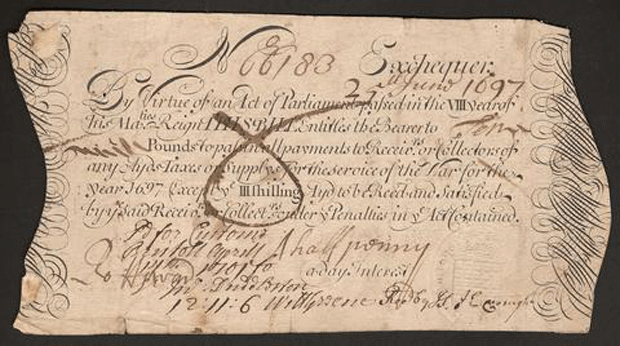 No 66183 Exchequer.
25 June 1697
By Virtue of an Act of Parliament passed in the VIII year of
his Maties Reign THIS BILL Entitles the Bearer to
Pounds to pass in all payments to Receivrs or Collectors of
any Ayds Taxes or Supplys For the service of the War for the
year 1697 (Except ye III shilling Ayd to be Recd and Satisfied
by ye said Receivrs or Collectrs under ye Penalties in ye Act Contained.
P for Customs
Bristoll April A half penny
a day Interest
12:11:6